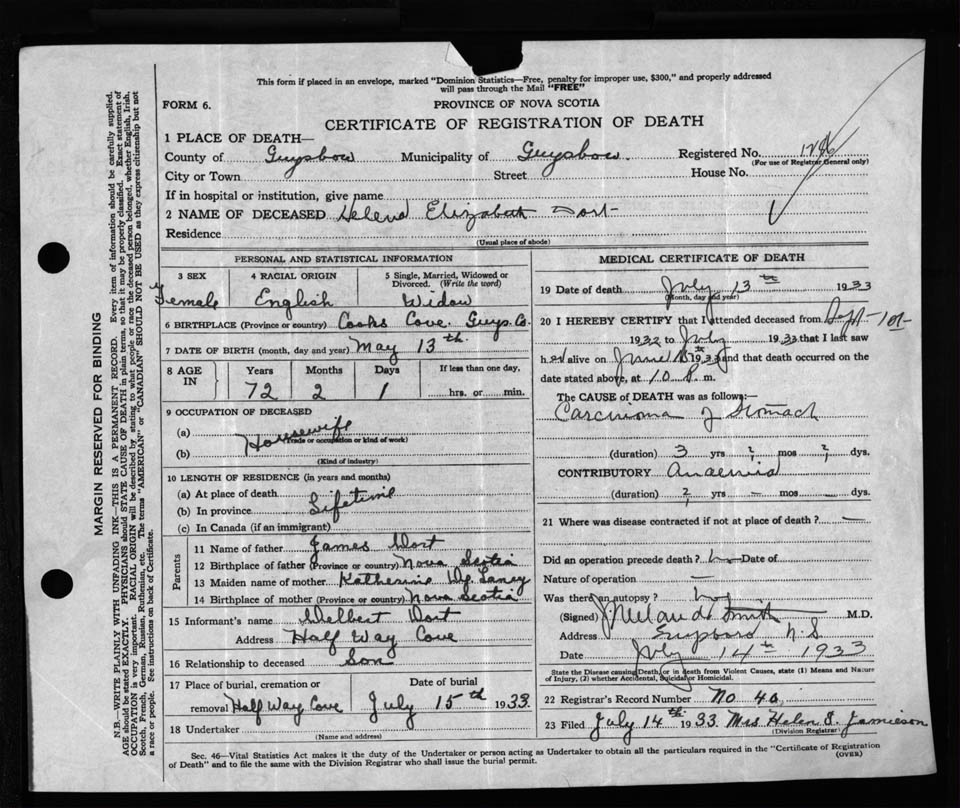 This form if placed in an envelope, marked "Dominion Statistics—Free, penalty for improper use, $300," and properly addressed
will pass through the Mail "FREE"
FORM 6.
PROVINCE OF NOVA SCOTIA
CERTIFICATE OF REGISTRATION OF DEATH
1 PLACE OF DEATH—
County of Guysboro Municipality of Guysboro. Registered No.
(For use of Registrar General only)
City or Town Street House No.
If in hospital or institution, give name
2 NAME OF DECEASED Helena Elizabeth Dort
Residence
(Usual place of abode)
PERSONAL AND STATISTICAL INFORMATION
3 SEX
Female
4 RACIAL ORIGIN
English
5 Single, Married, Widowed or
Divorced. (Write the word)
Widow
6 BIRTHPLACE (Province or country) Cooks Cove Guys. Co.
7 DATE OF BIRTH (month, day and year) May 13th
8 AGE IN
Years Months Days If less than one day,
72 2 1 hrs. or min.
9 OCCUPATION OF DECEASED
(a) Housewife
(Trade or occupation or kind of work)
(b)
(Kind of industry)
10 LENGTH OF RESIDENCE (in years and months)
(a) At place of death
(b) In province Lifetime
(c) In Canada (if an immigrant)
Parents
11 Name of father James Dort
12 Birthplace of father (Province or country) Nova Scotia
13 Maiden name of mother Katherine
14 Birthplace of mother (Province or country) Nova Scotia
15 Informant's name Delbert Dort
Address Half Way Cove
16 Relationship to deceased Son
17 Place of burial, cremation or Date of burial
removal Half Way Cove July 15th 1933.
18 Undertaker
(Name and address)
MEDICAL CERTIFICATE OF DEATH
19 Date of death July 13th 1933
(Month, day and year)
20 I HEREBY CERTIFY that I attended deceased from Sept-1st-
1932 to July 1933 that I last saw
her alive on June 1933 and that death occurred on
date stated above, at 10 P. m.
The CAUSE of DEATH was as follows:
Carcinoma of Stomach
(duration) 3 yrs ? mos ? dys.
CONTRIBUTORY Anaemia
(duration) 2 yrs — mos — dys.
21 Where was disease contracted if not at place of death? —
Did an operation precede death? no Date of
Nature of operation —
Was there an autopsy? no
(Signed) Smith M.D.
Address Guysboro N.S
Date July 14th 1933
State the Disease causing Death, or in death from Violent Causes, state (1) Means and Nature
of Injury, (2) whether Accidental, Suicidal or Homicidal.
22 Registrar's Record Number No 40
23 Filed July 14th 1933. Mrs Helen S. Jamieson
(Division Registrar)
Sec. 46—Vital Statistics Act makes it the duty of the Undertaker or person acting as Undertaker to obtain all the particulars required in the "Certificate of Registration
of Death" and to file the same with the Division Registrar who shall issue the burial permit.
(OVER)
MARGIN RESERVED FOR BINDING
N.B.—WRITE PLAINLY WITH UNFADING INK—THIS IS A PERMANENT RECORD. Every item of information should be carefully supplied.
AGE should be stated EXACTLY. PHYSICIANS should STATE CAUSE OF DEATH in plain terms, so that it may be properly classified. Exact statement of
OCCUPATION is very important. RACIAL ORIGIN will be described by stating to what people or race the deceased person belonged, whether English, Irish,
Scotch, French, German, Russian, Ruthenian, etc. The terms "AMERICAN" or "CANADIAN" SHOULD NOT BE USED as they express citizenship but not
a race or people. See instructions on back of Certificate.